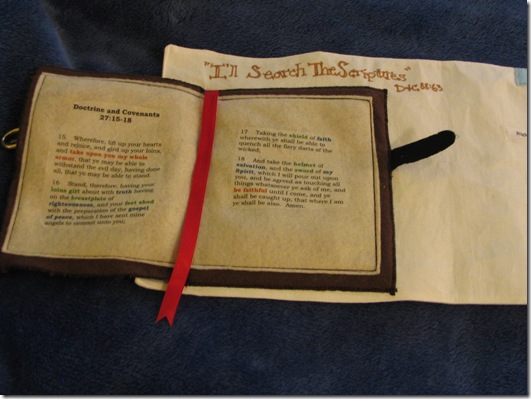 "I'll Search The Scriptures"
D+C 88:63
Doctrine and Covenants
27:15-18
15 Wherefore, lift up your hearts
and rejoice, and gird up your loins,
and take upon you my whole
armor, that ye may be able to
withstand the evil day, having done
all, that ye may be able to stand.
16 Stand, therefore, having your
loins girt about with truth having
on the breastplate of
righteousness, and your feet shod
with the preparation of the gospel
of peace, which I have sent mine
angels to commit unto you;
17 Taking the shield of faith
wherewith ye shall be able to
quench all the fiery darts of the
wicked;
18 And take the helmet of
salvation, and the sword of my
Spirit, which I will pour out upon
you, and be agreed as touching all
things whatsoever ye ask of me, and
be faithful until I come, and ye
shall be caught up, that where I am
ye shall be also. Amen.